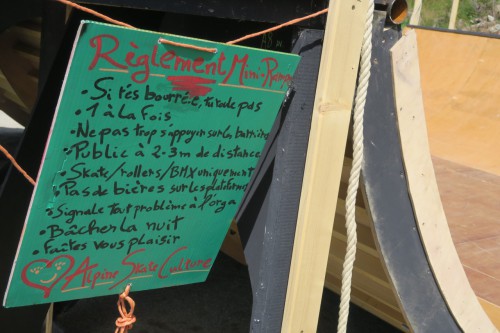 Règlement Mini-Ramp
• Si t'es bourré.e, tu rule pas
• 1 à la fois
• Ne pas trop s'appuyer sur les barrières
• Public à 2-3m de distance
• Skate/rollers/BMX uniquement
• Pas de bières sur les plateformes
• Signale tout problème à l'orga
• Bâcher la nuit
• Faîtes vous plaisir
Alpine Skate Culture